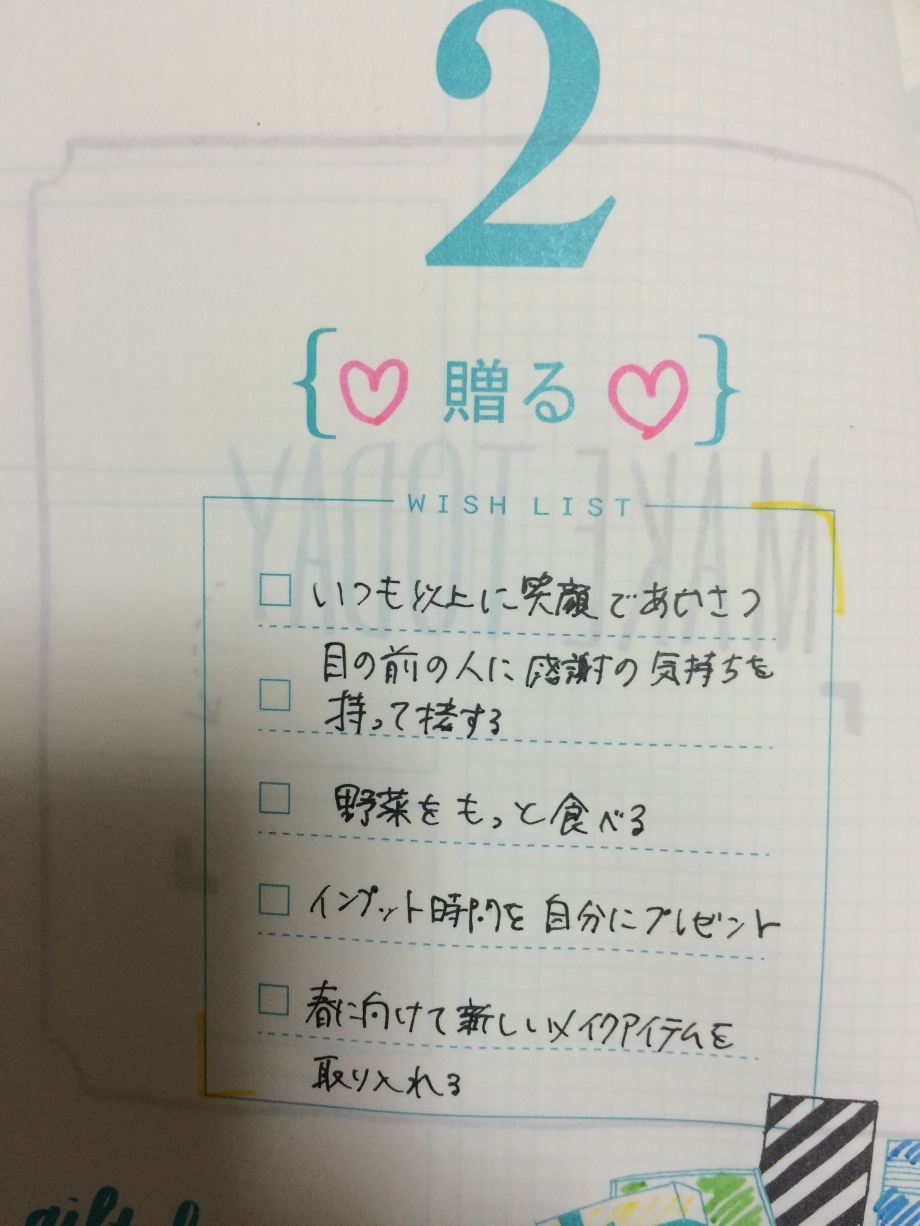 2
{♡ 贈る ♡}
WISH LIST
いつも以上に笑顔であいさつ
目の前の人に感謝の気持ちを
持って接する
野菜をもっと食べる
インプット時間を自分にプレゼント
春に向けて新しいメイクアイテムを
取り入れる
MAKE TODAY